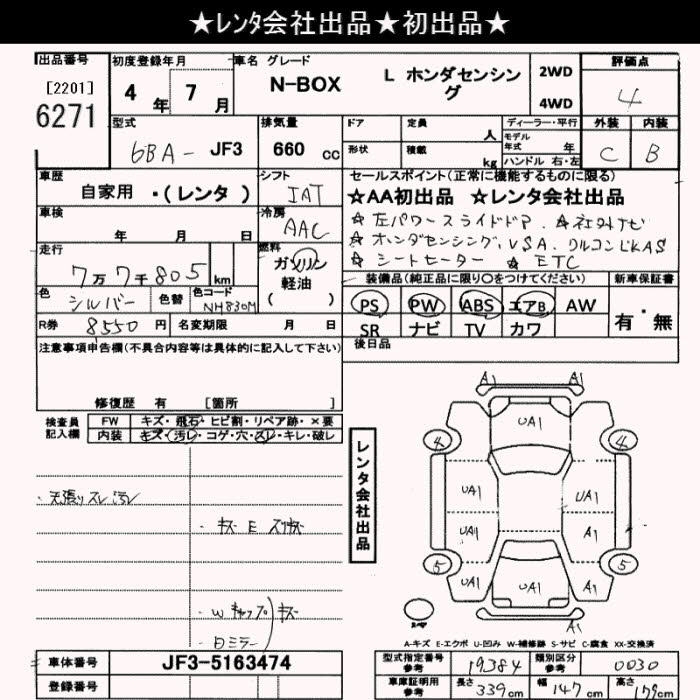 ★レンタ会社出品★初出品★
出品番号 初度登録年月 車名 グレード 評価点
[2201] 6271 4年 7月 N-BOX L ホンダセンシング 2WD 4WD 4
型式 排気量 ドア 定員 人 ディーラー・平行 外装 内装
6BA- JF3 660 cc 形状 積載 kg モデル年式 年 ハンドル 右・左 C B
車歴 シフト セールスポイント(正常に機能するものに限る)
自家用 ・(レンタ) IAT ☆AA初出品 ☆レンタ会社出品
車検 年 月 日 冷房 AAC
☆左パワースライドドア.
☆ホンダセンシング, VSA, LKAS
☆シートヒーター ☆ETC
走行 7万7千805 km 燃料 ガソリン 軽油 ( )
装備品(純正品に限り○をつけてください) 新車保証書
色 シルバー 色替 色コード NH830M
PS PW ABS エアB AW 有・無
R券 8550円 名変期限 月 日
SR ナビ TV カワ
注意事項申告欄(不具合内容等は具体的に記入して下さい) 後日品
修復歴 有 [箇所 ]
検査員記入欄 FW キズ・飛石・ヒビ割・リペア跡・×要
内装 キズ・汚レ・コゲ・穴・スレ・キレ・破レ
・天張りスレ汚レ
・キズ E スリキズ
・Wキャップ キズ
・Dミラー
レンタ会社出品
A1 A1
UA1
4 4
UA1 UA1
UA1 A1
5 5
UA1 UA1 A1
A1
A-キズ E-エクボ U-凹み W-補修跡 S-サビ C-腐食 XX-交換済
車体番号 JF3-5163474
登録番号
型式指定番号 参考 19384 類別区分 参考 0030
車庫証明用 参考 長さ 339cm 幅 147cm 高さ 179cm